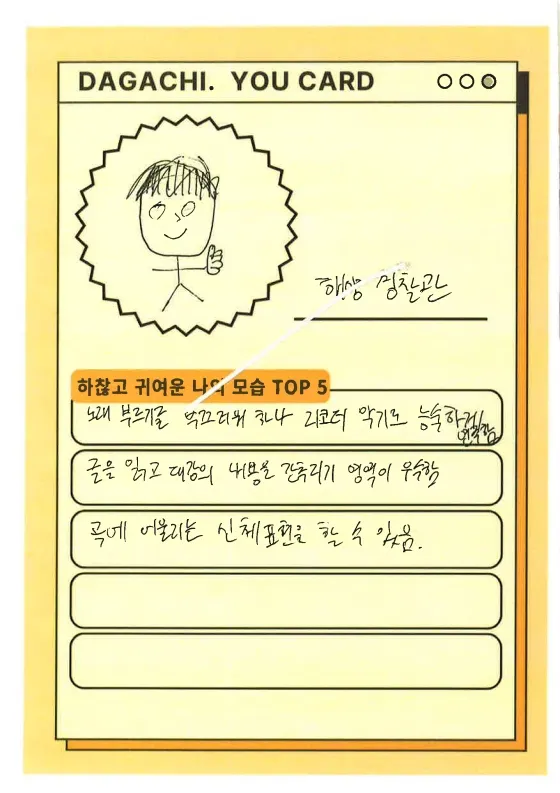 DAGACHI. YOU CARD
학생 경찰관
하찮고 귀여운 나의 모습 TOP 5
노래 부르기를 부끄러워 하나 리코더 악기로 능숙하게 연주함
글을 읽고 대강의 내용을 간추리기 영역이 우수함
곡에 어울리는 신체표현을 할 수 있음.